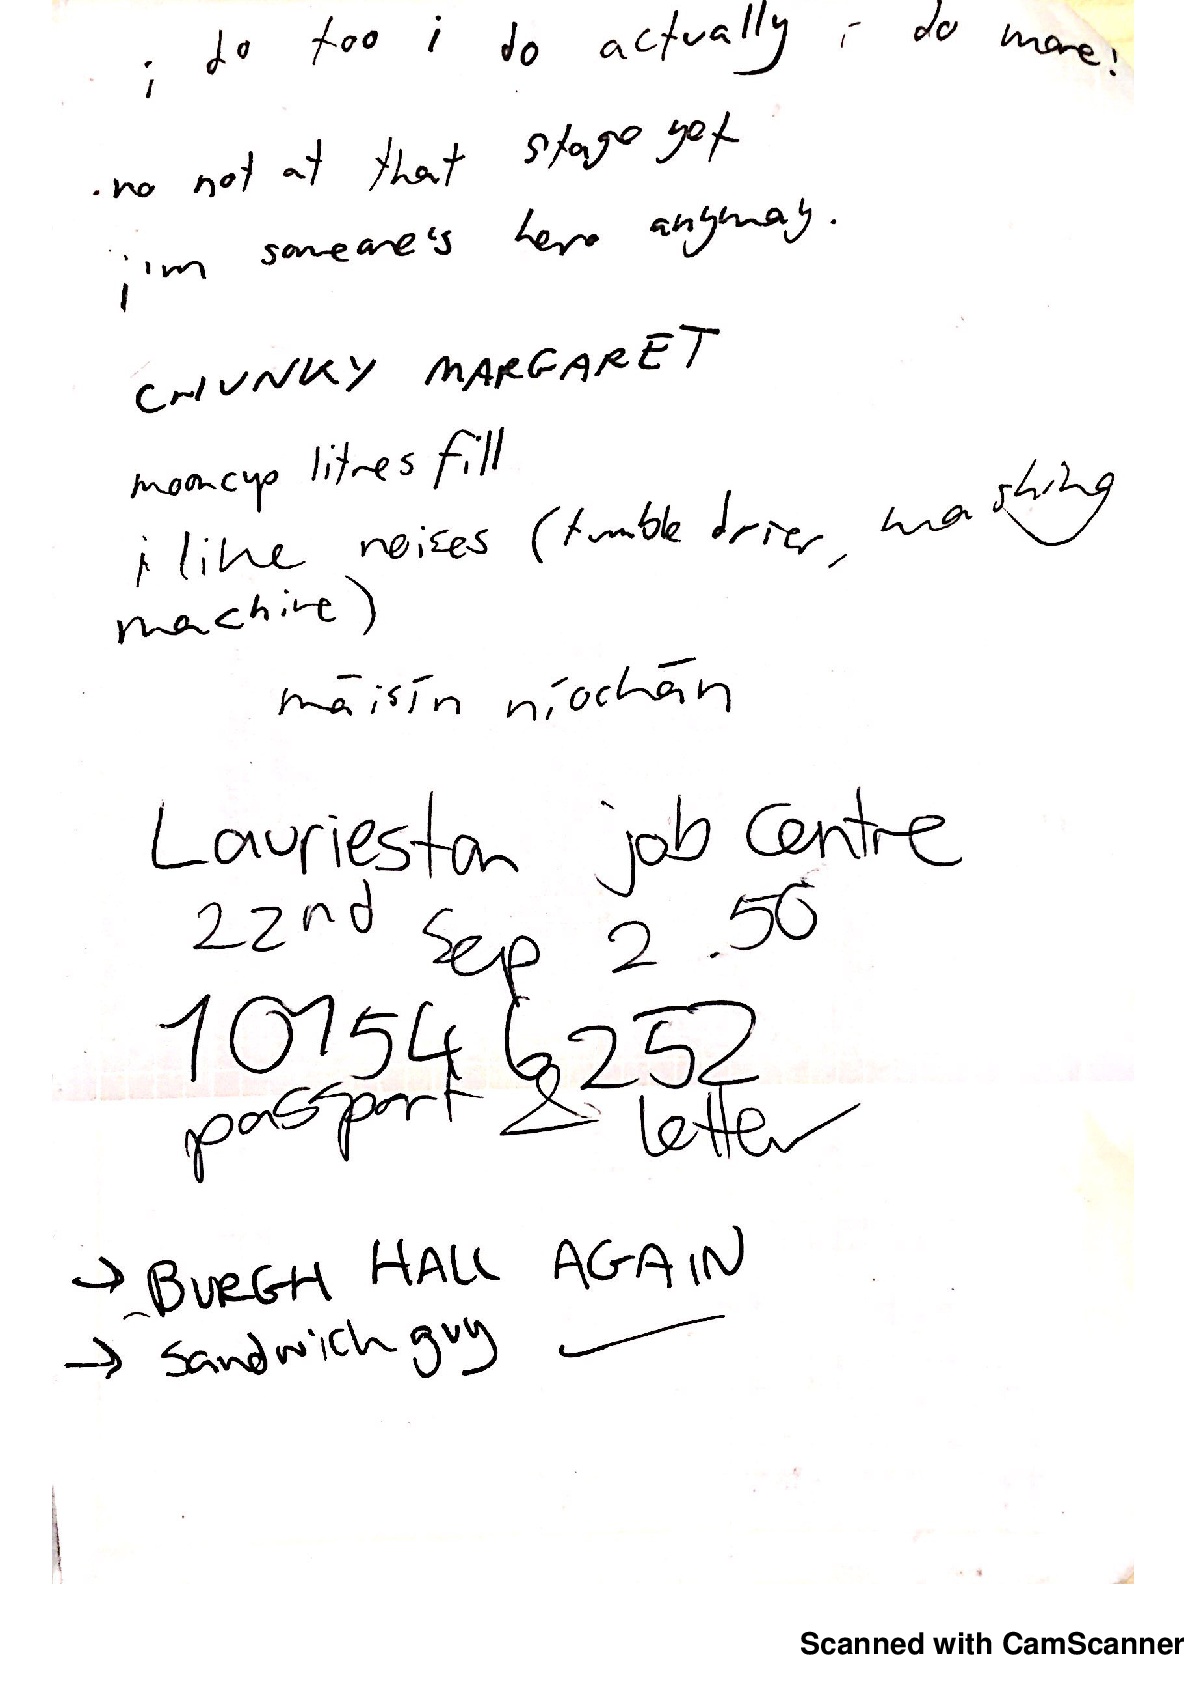 i do too i do actually i do more!
.no not at that stage yet
i'm someone's hero anyway.
CHUNKY MARGARET
mooncup litres fill
i like noises (tumble drier, washing
machine)
māisīn nīochān
Laurieston job centre
22nd Sep 2.50
101546252
passport & letter
→ BURGH HALL AGAIN
→ Sandwich guy
Scanned with CamScanner